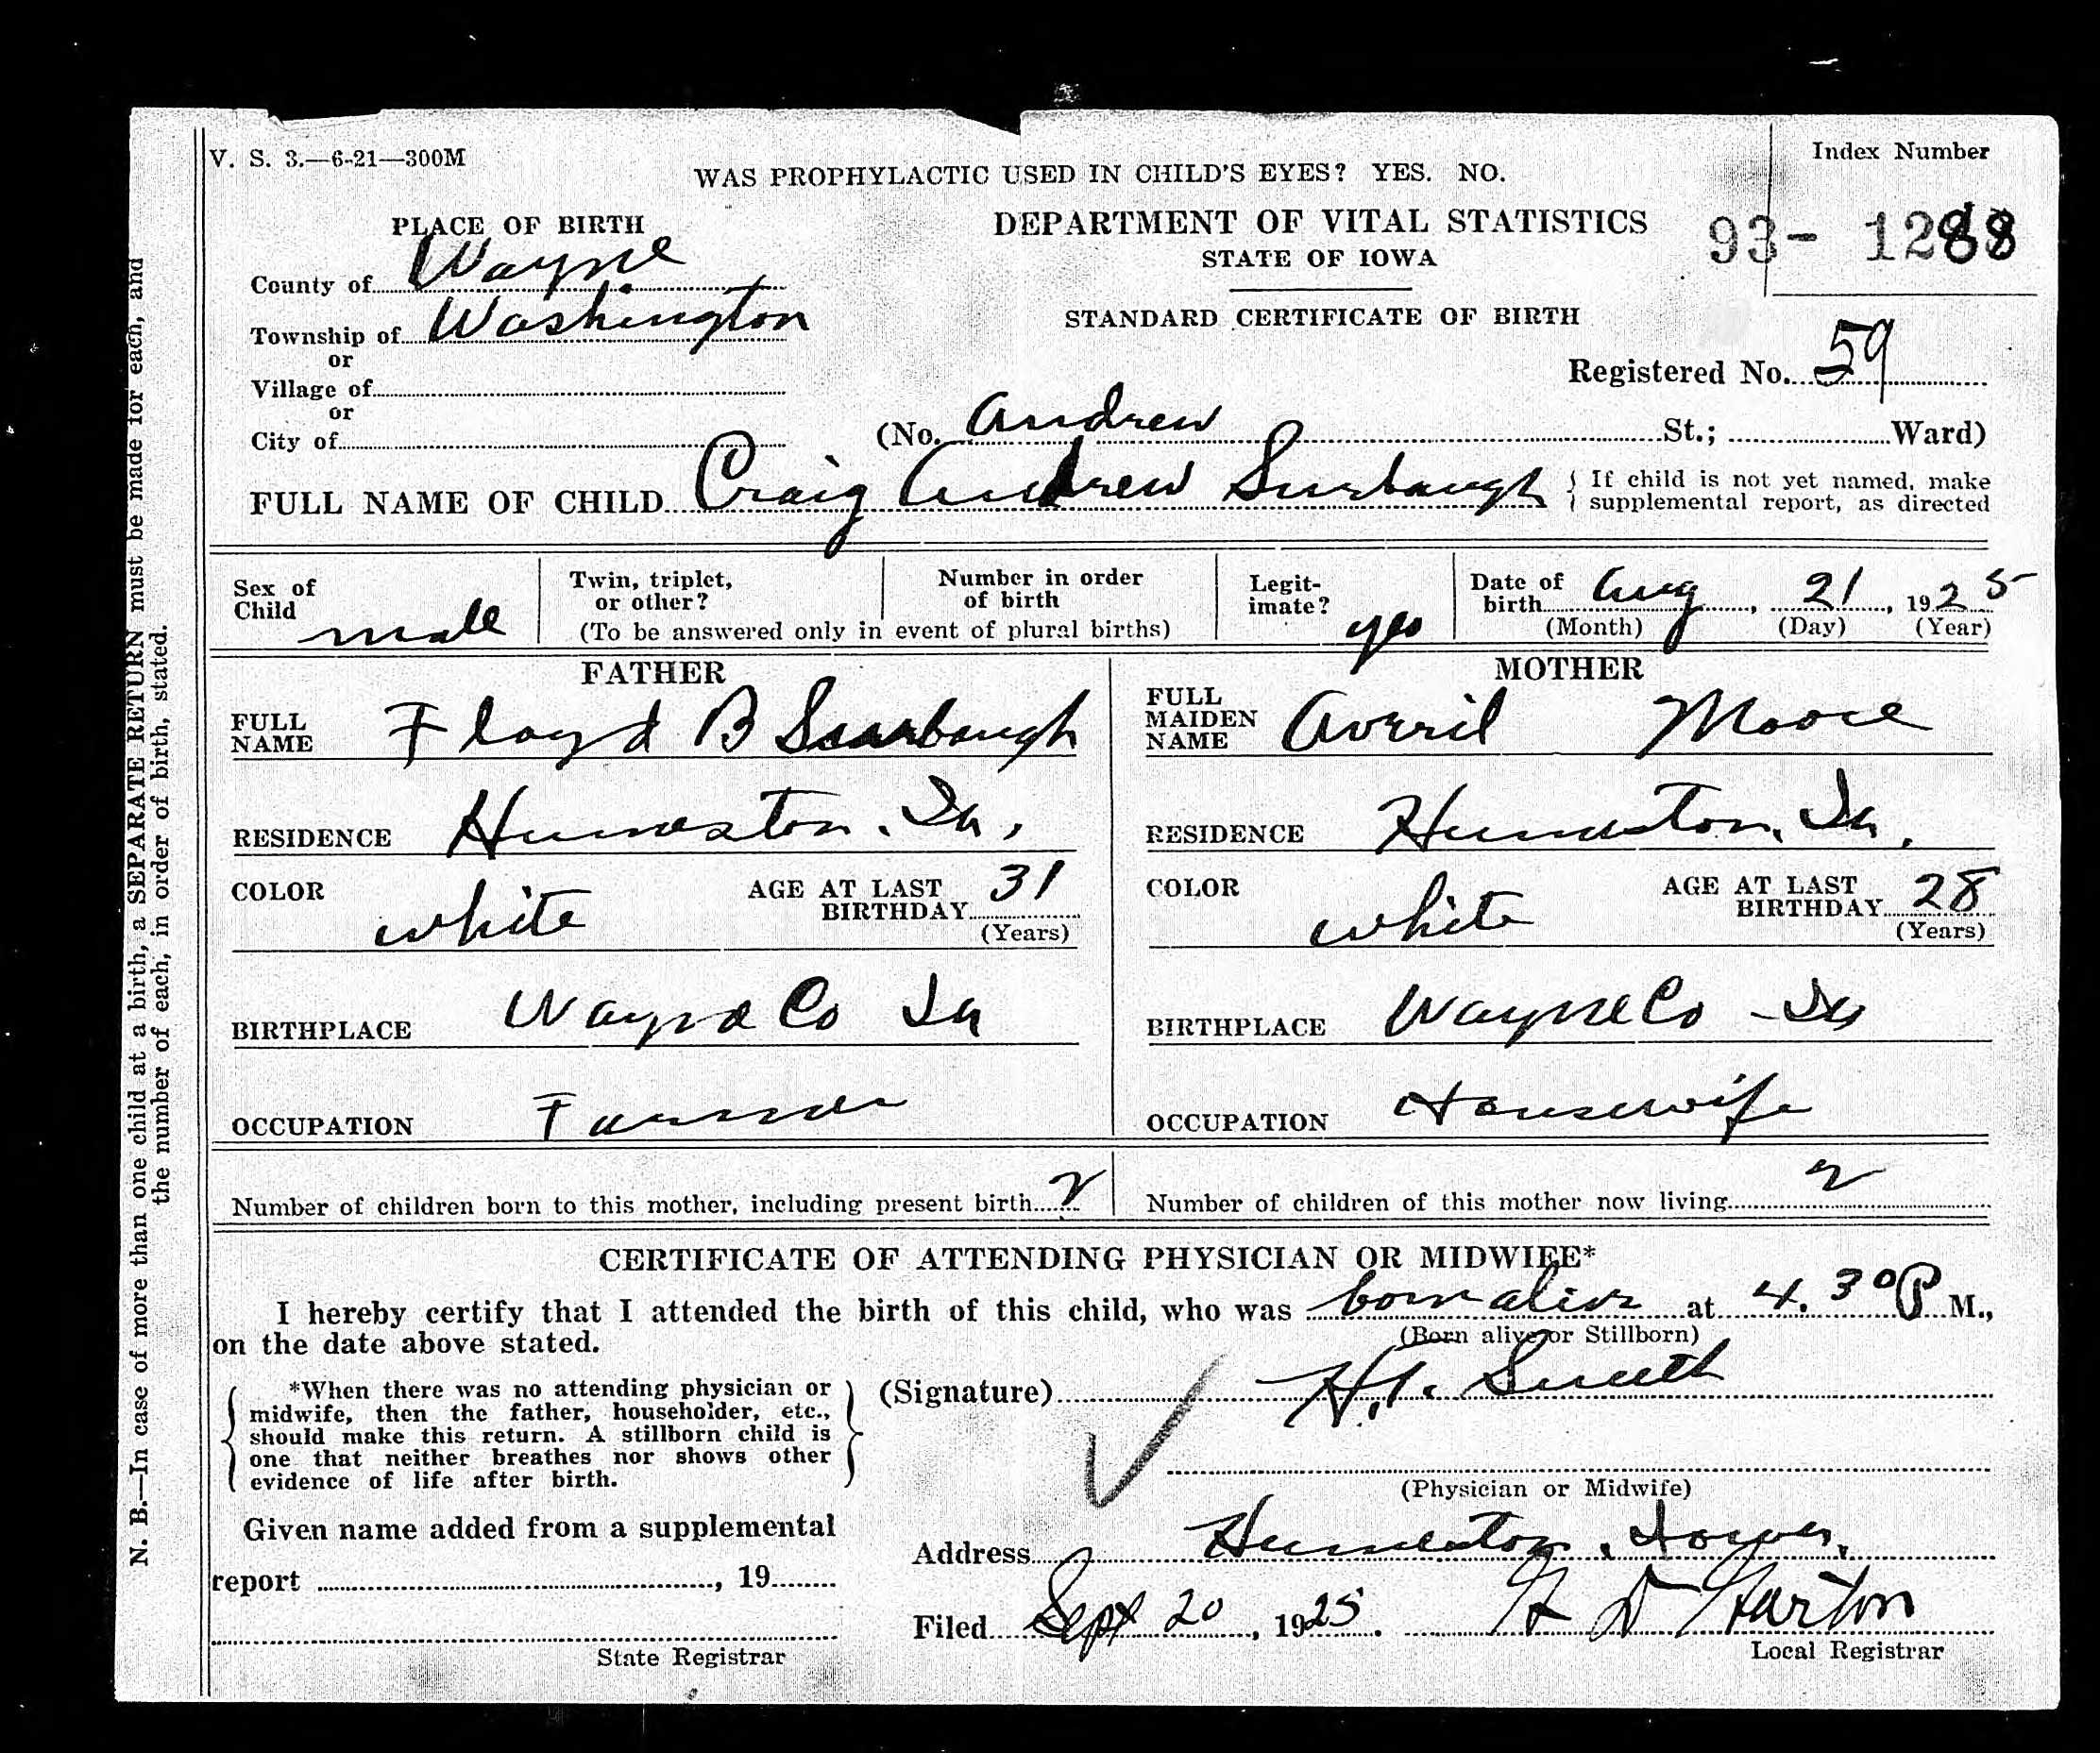 V. S. 3.—6-21—300M
WAS PROPHYLACTIC USED IN CHILD'S EYES? YES. NO.
Index Number
93- 1288
PLACE OF BIRTH
County of Wayne
Township of Washington
or
Village of
or
City of
DEPARTMENT OF VITAL STATISTICS
STATE OF IOWA
STANDARD CERTIFICATE OF BIRTH
Registered No. 59
(No. Andrew St.; Ward)
FULL NAME OF CHILD Craig Andrew Surbaugh { If child is not yet named, make
{ supplemental report, as directed
Sex of
Child male
Twin, triplet,
or other?
Number in order
of birth
(To be answered only in event of plural births)
Legit-
imate? yes
Date of
birth Aug, 21, 1925
(Month) (Day) (Year)
FATHER
FULL
NAME Floyd B Surbaugh
RESIDENCE Humeston. Ia,
COLOR white
AGE AT LAST
BIRTHDAY 31
(Years)
BIRTHPLACE Wayne Co Ia
OCCUPATION Farmer
MOTHER
FULL
MAIDEN
NAME Averil Moore
RESIDENCE Humeston, Ia.
COLOR white
AGE AT LAST
BIRTHDAY 28
(Years)
BIRTHPLACE Wayne Co - Ia
OCCUPATION Housewife
Number of children born to this mother, including present birth 2
Number of children of this mother now living 2
CERTIFICATE OF ATTENDING PHYSICIAN OR MIDWIFE*
I hereby certify that I attended the birth of this child, who was born alive at 4.30 P M.,
(Born alive or Stillborn)
on the date above stated.
*When there was no attending physician or
midwife, then the father, householder, etc.,
should make this return. A stillborn child is
one that neither breathes nor shows other
evidence of life after birth.
(Signature) Smith
(Physician or Midwife)
Given name added from a supplemental
report , 19
State Registrar
Address Humeston, Iowa.
Filed Sept 20, 1925. D Garton
Local Registrar
N. B.—In case of more than one child at a birth, a SEPARATE RETURN must be made for each, and
the number of each, in order of birth, stated.